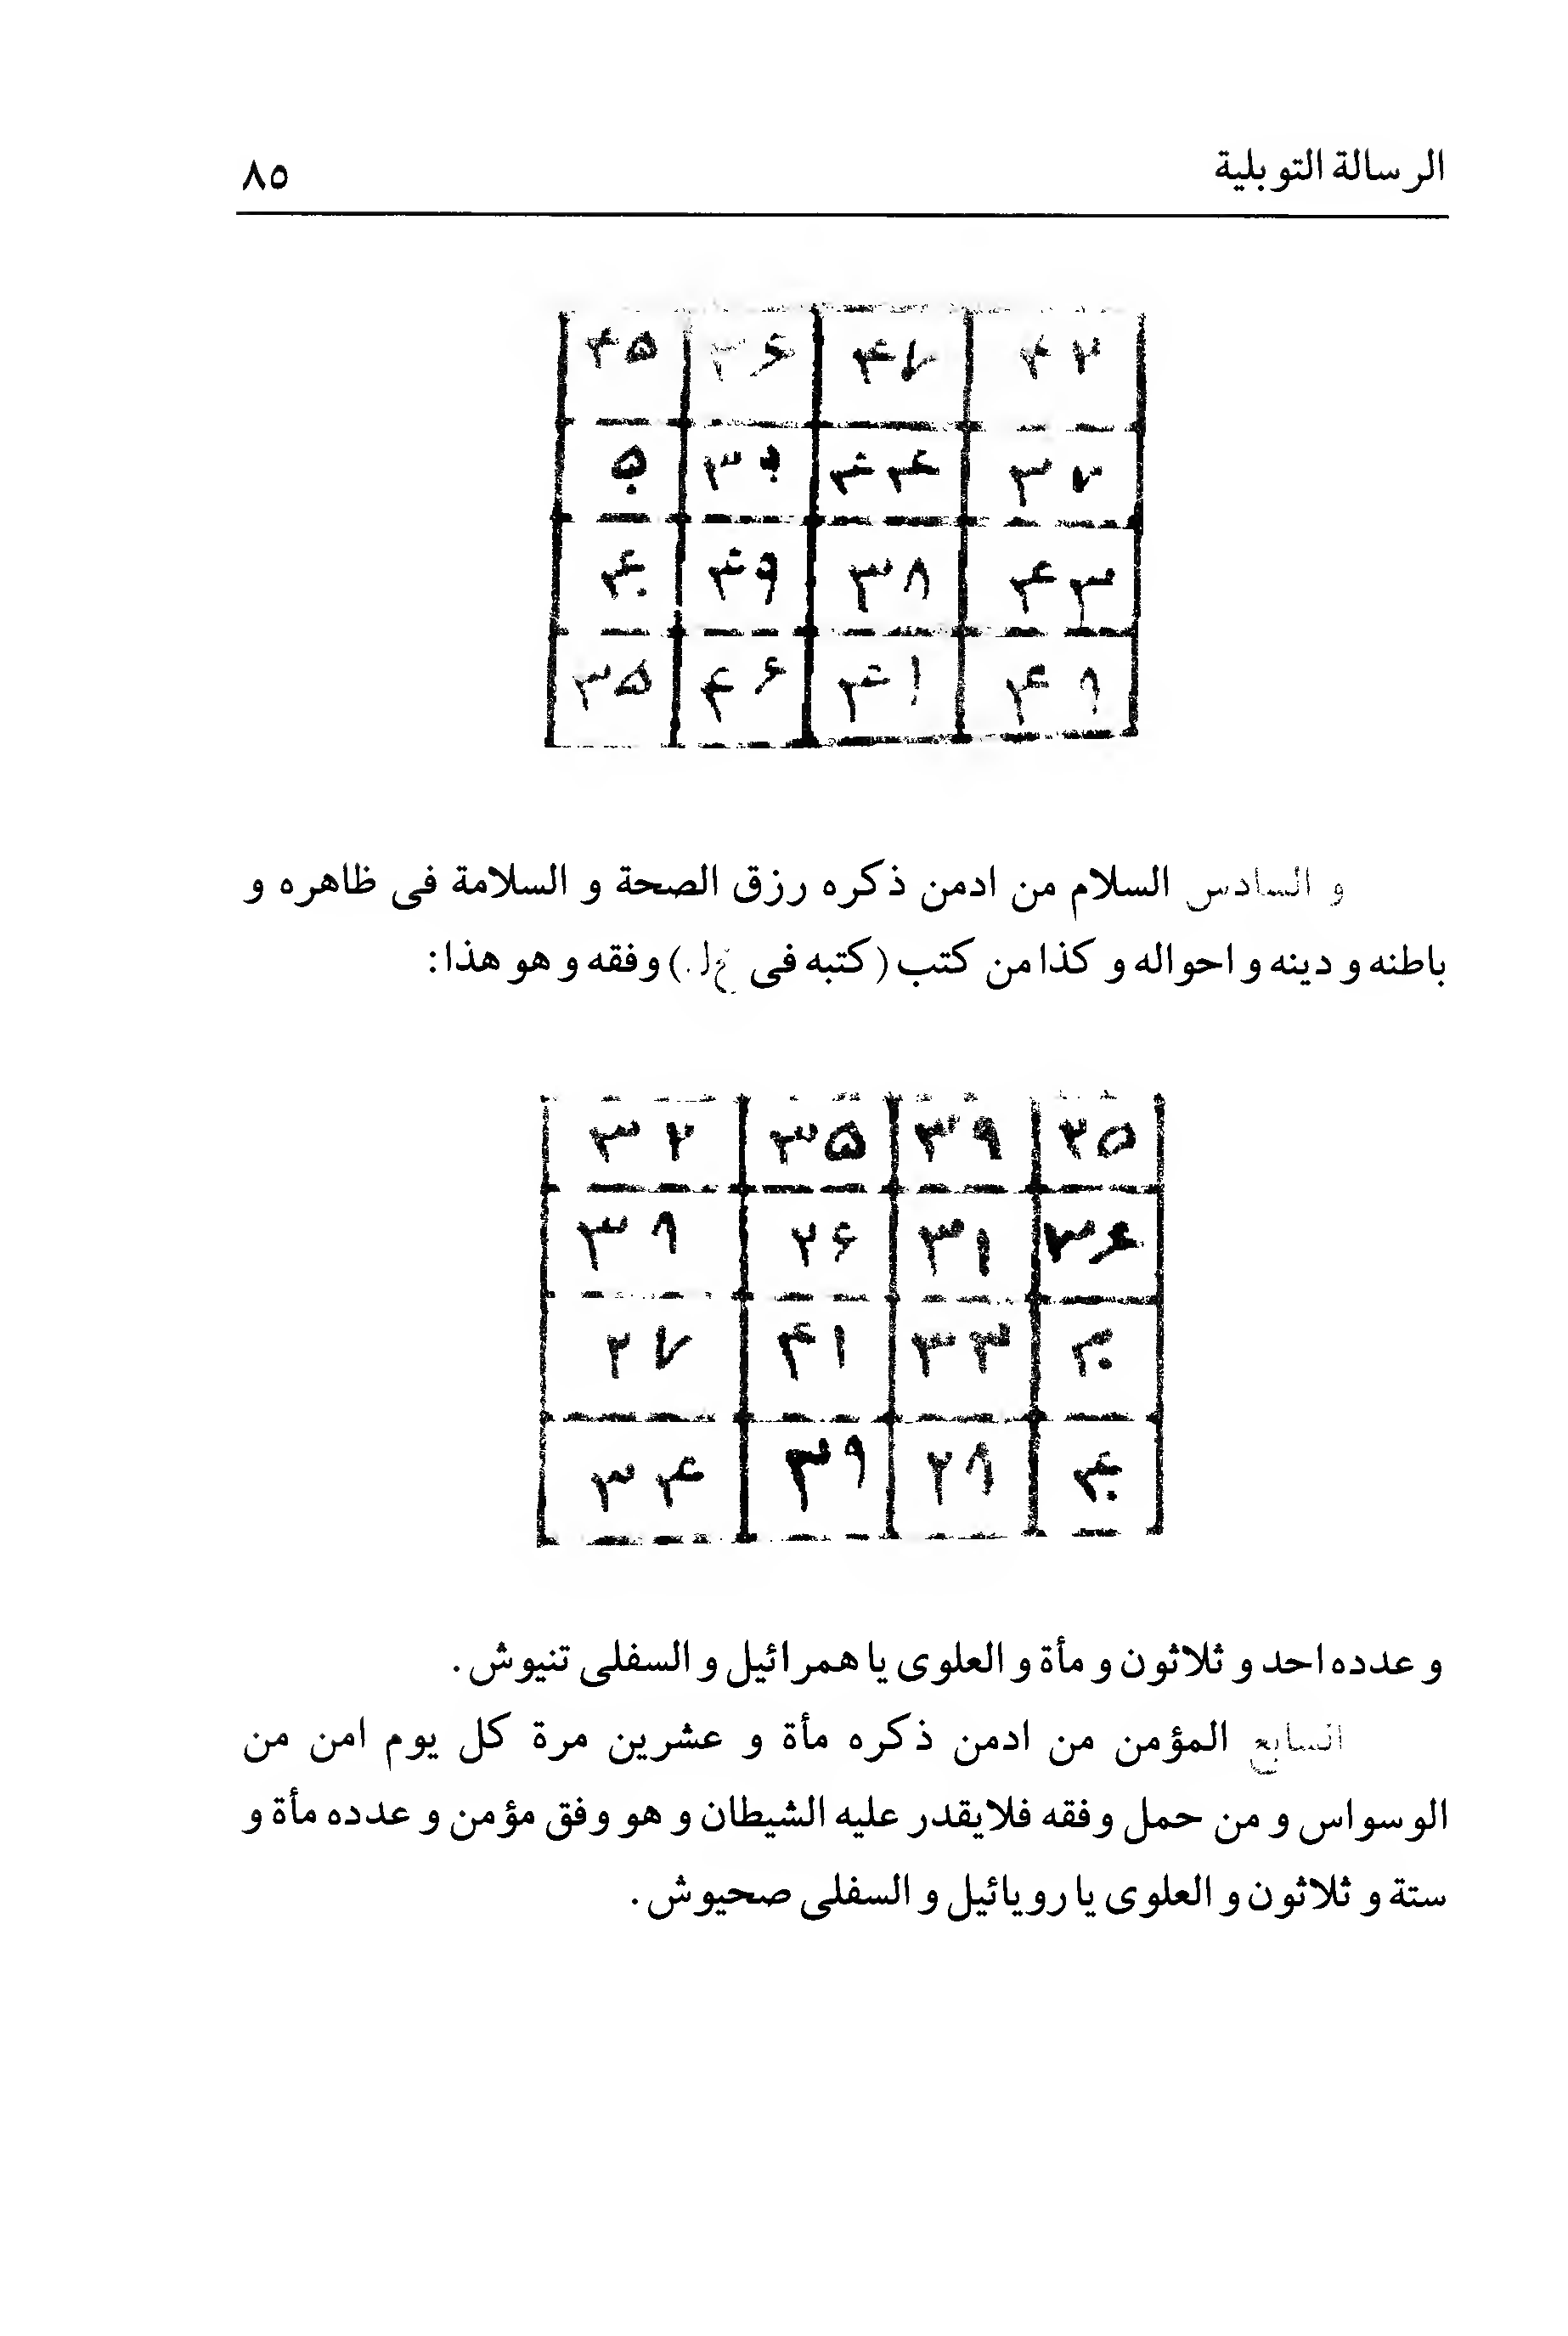 الرسالة التوبلية ٨٥
۴۲ ۴۷ ۳۶ ۴۵
۳۷ ۴۴ ۳۹ ۵۰
۴۳ ۳۸ ۴۹ ۴۰
۴۸ ۴۱ ۴۶ ۳۵
و السادس السلام من ادمن ذكره رزق الصحة و السلامة فى ظاهره و
باطنه و دينه و احواله و كذا من كتب (كتبه فى خ‌ل.) وفقه و هو هذا:
۲۵ ۳۹ ۳۵ ۳۲
۳۶ ۳۱ ۲۶ ۳۸
۳۰ ۳۳ ۴۱ ۲۷
۴۰ ۲۸ ۳۹ ۳۴
و عدده احد و ثلاثون و مأة و العلوى يا همرائيل و السفلى تنيوش.
السابع المؤمن من ادمن ذكره مأة و عشرين مرة كل يوم امن من
الوسواس و من حمل وفقه فلايقدر عليه الشيطان و هو وفق مؤمن و عدده مأة و
ستة و ثلاثون و العلوى يا رويائيل و السفلى صحيوش.